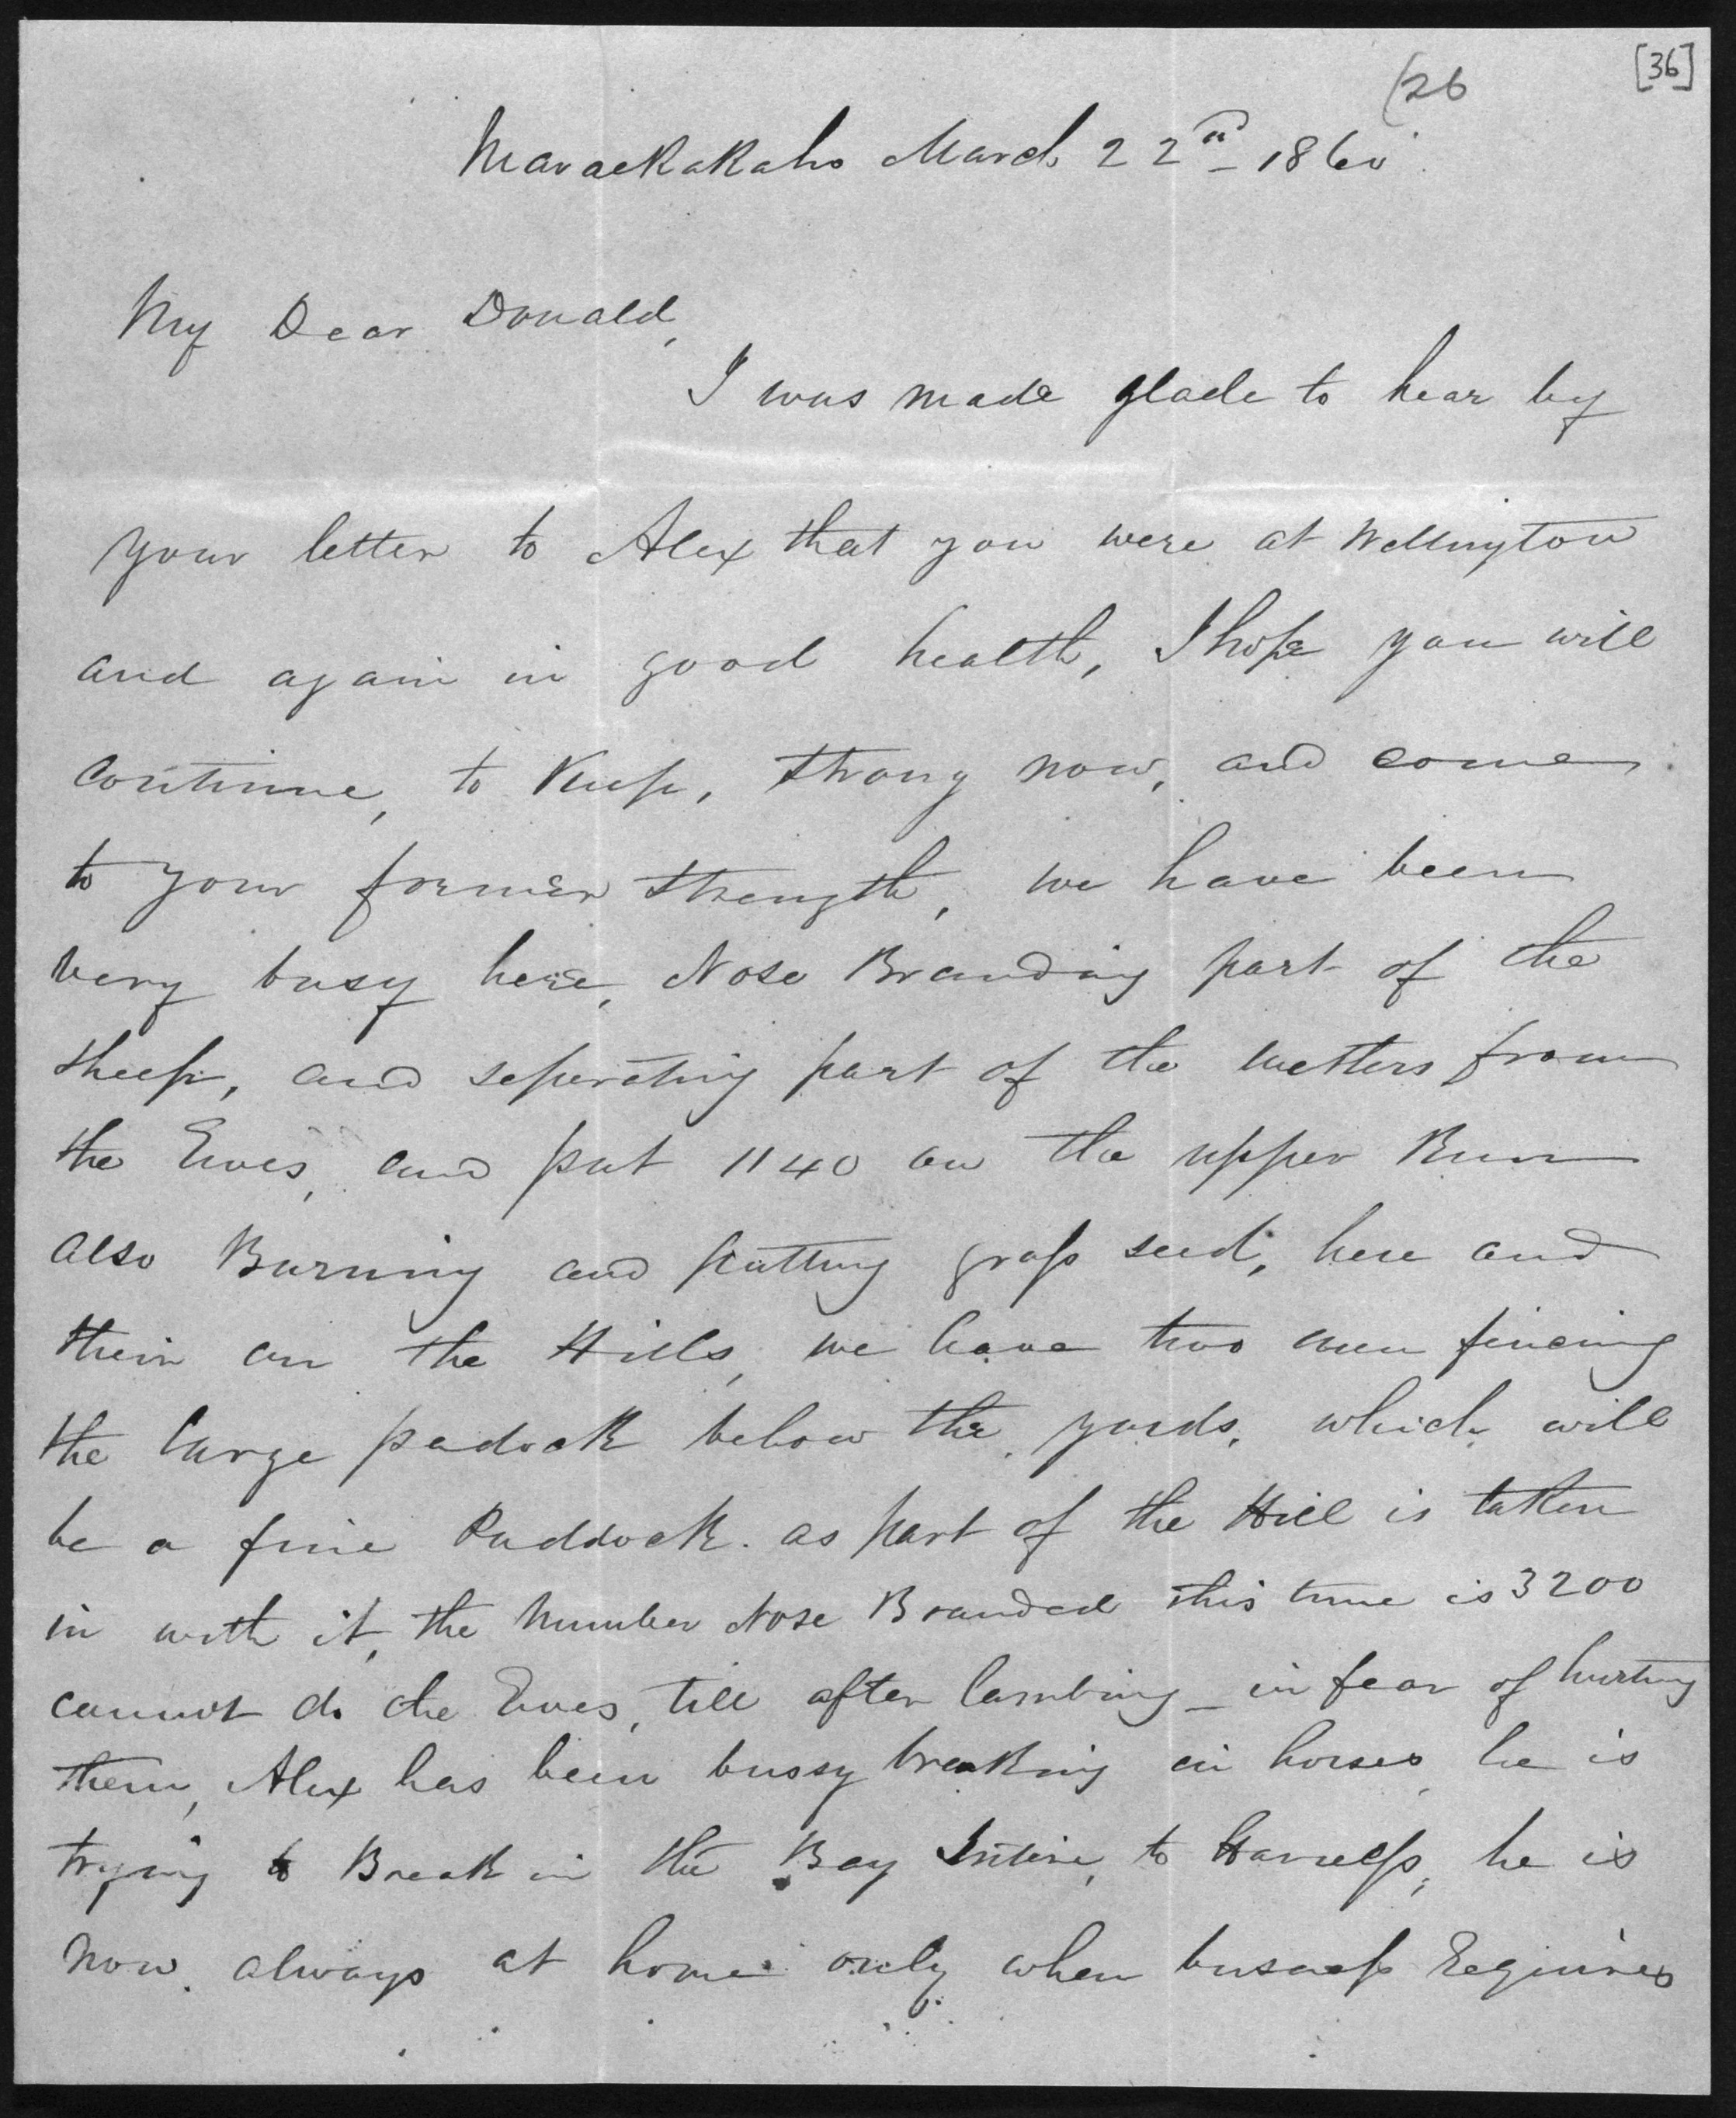 [36]
(26
Maraekakaho March 22nd 1860
My Dear Donald,
I was made glade to hear by
your letter to Alex that you were at Wellington
and again in good health, I hope you will
continue, to Keep, strong now, and come
to your former strength, we have been
very busy here, Nose Branding part of the
sheep, and seperating part of the wetters from
the Ewes, and put 1140 on the upper Run
also Burning and putting grass seed, here and
their on the Hills, we have two men fincing
the large padock below the yards, which will
be a fine Paddock. as part of the Hill is taken
in with it, the number Nose Branded this time is 3200
cannot do the Ewes, till after lambing - in fear of hurting
them, Alex has been bussy breaking in horses, he is
trying to Break in the Bay Intire, to Harness, he is
now always at home only when busness Requires